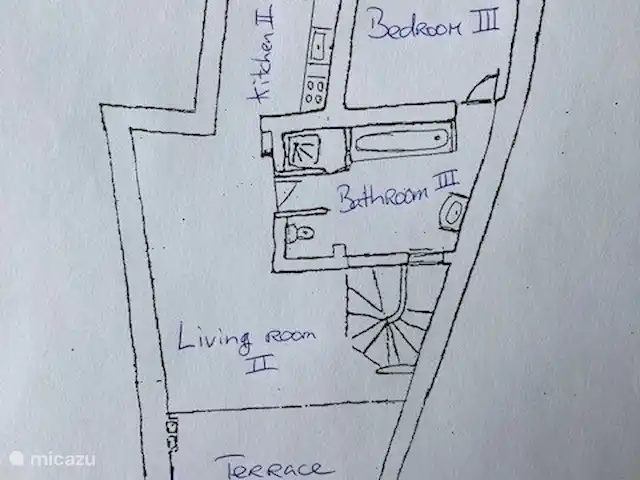 Bedroom III
Kitchen II
Bathroom III
Living room
II
Terrace
micazu